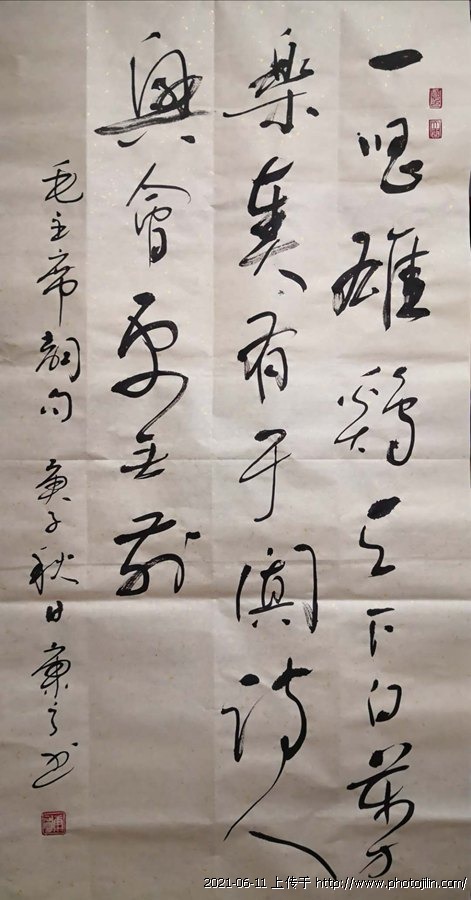 一唱雄鷄天下白萬方
樂奏有于闐詩人
興會更無前
毛主席詞句 庚子秋日 书
2021-06-11 上传于 http://www.photojilin.com/